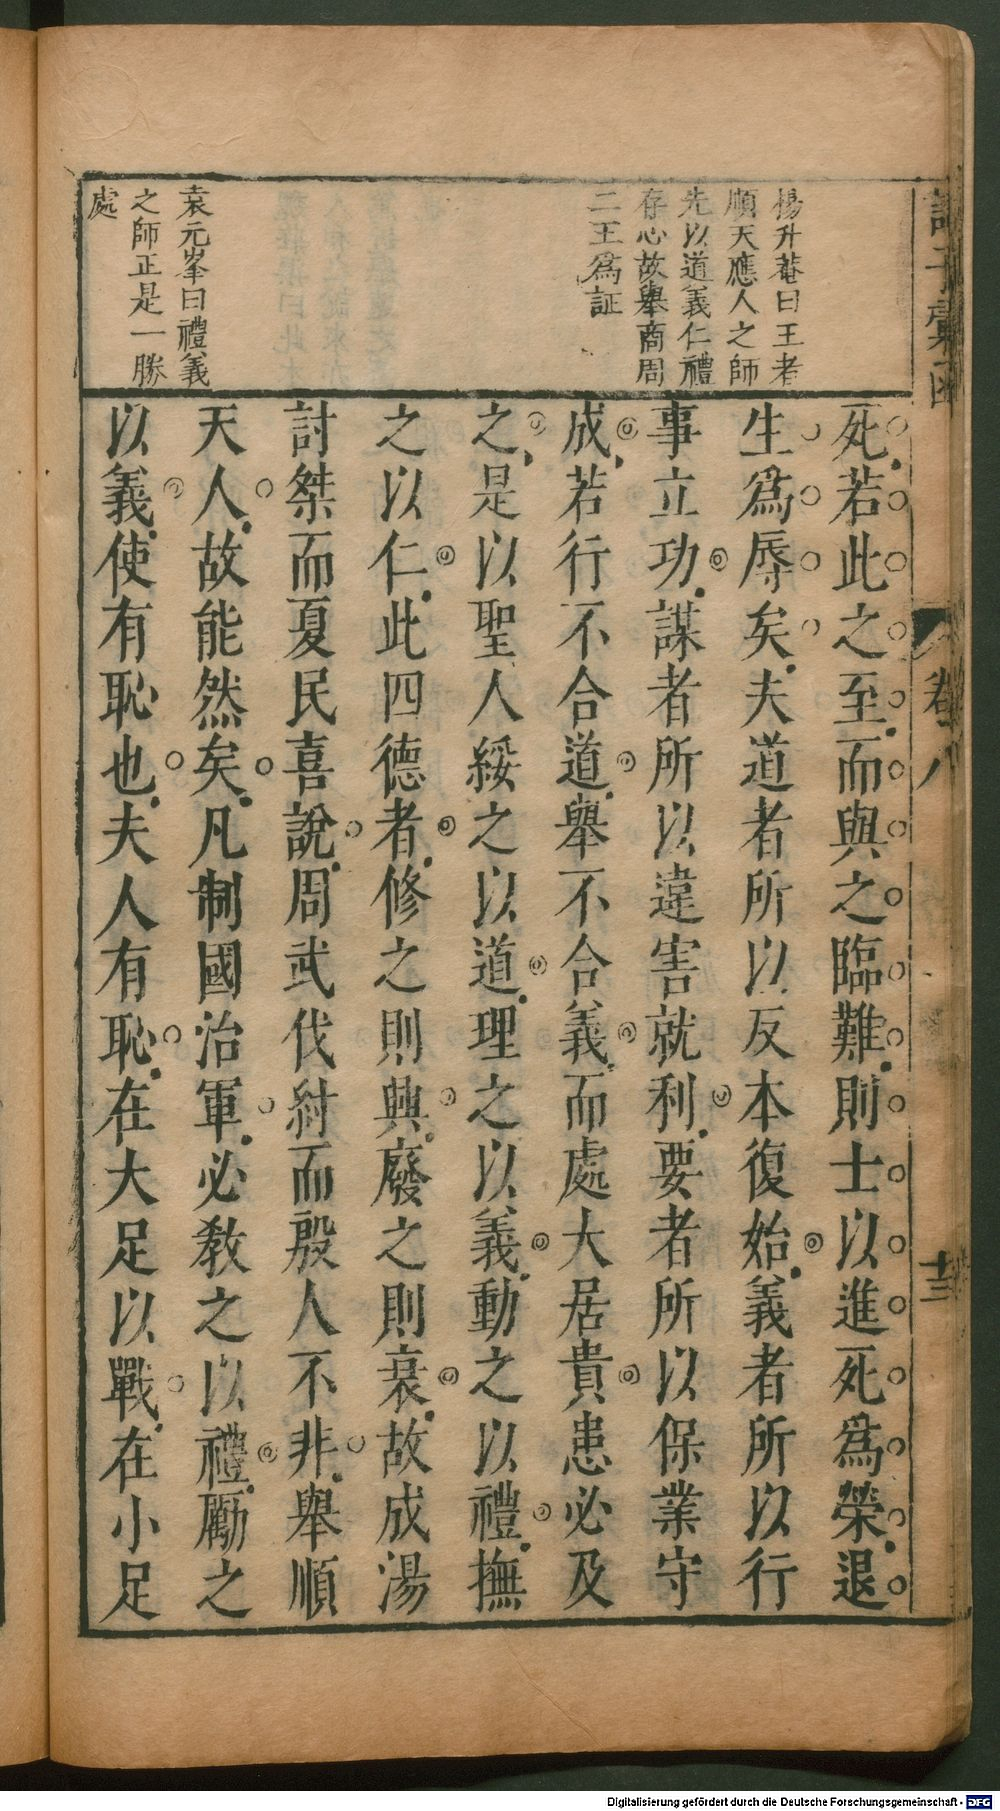 諸子彙函
卷八
楊升菴曰王者
順天應人之師
先以道義仁禮
存心故舉商周
二王爲証
袁元峯曰禮義
之師正是一勝
處
死若此之至而與之臨難則士以進死爲榮退
生爲辱矣夫道者所以反本復始義者所以行
事立功謀者所以違害就利要者所以保業守
成若行不合道舉不合義而處大居貴患必及
之是以聖人綏之以道理之以義動之以禮撫
之以仁此四德者修之則興廢之則衰故成湯
討桀而夏民喜說周武伐紂而殷人不非舉順
天人故能然矣凡制國治軍必教之以禮勵之
以義使有恥也夫人有恥在大足以戰在小足
Digitalisierung gefördert durch die Deutsche Forschungsgemeinschaft - DFG